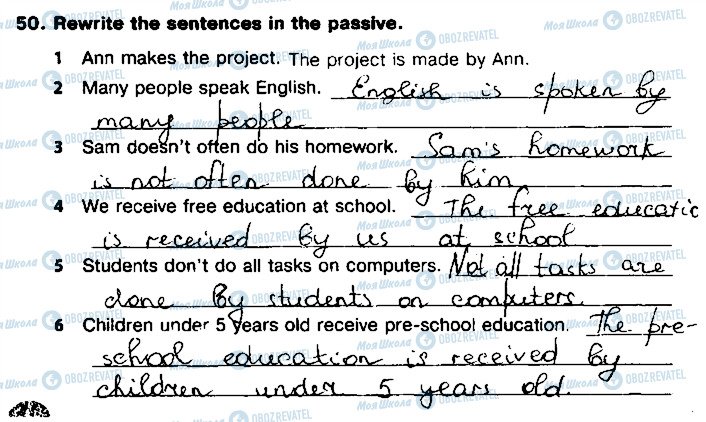 50. Rewrite the sentences in the passive.
1 Ann makes the project. The project is made by Ann.
2 Many people speak English. English is spoken by
many people
3 Sam doesn't often do his homework. Sam's homework
is not often done by him
4 We receive free education at school. The free educatic
is received by us at school
5 Students don't do all tasks on computers. Not all tasks are
done by students on computers.
6 Children under 5 years old receive pre-school education. The pre-
school education is received by
children under 5 years old.
Моя Школа OBOZREVATEL